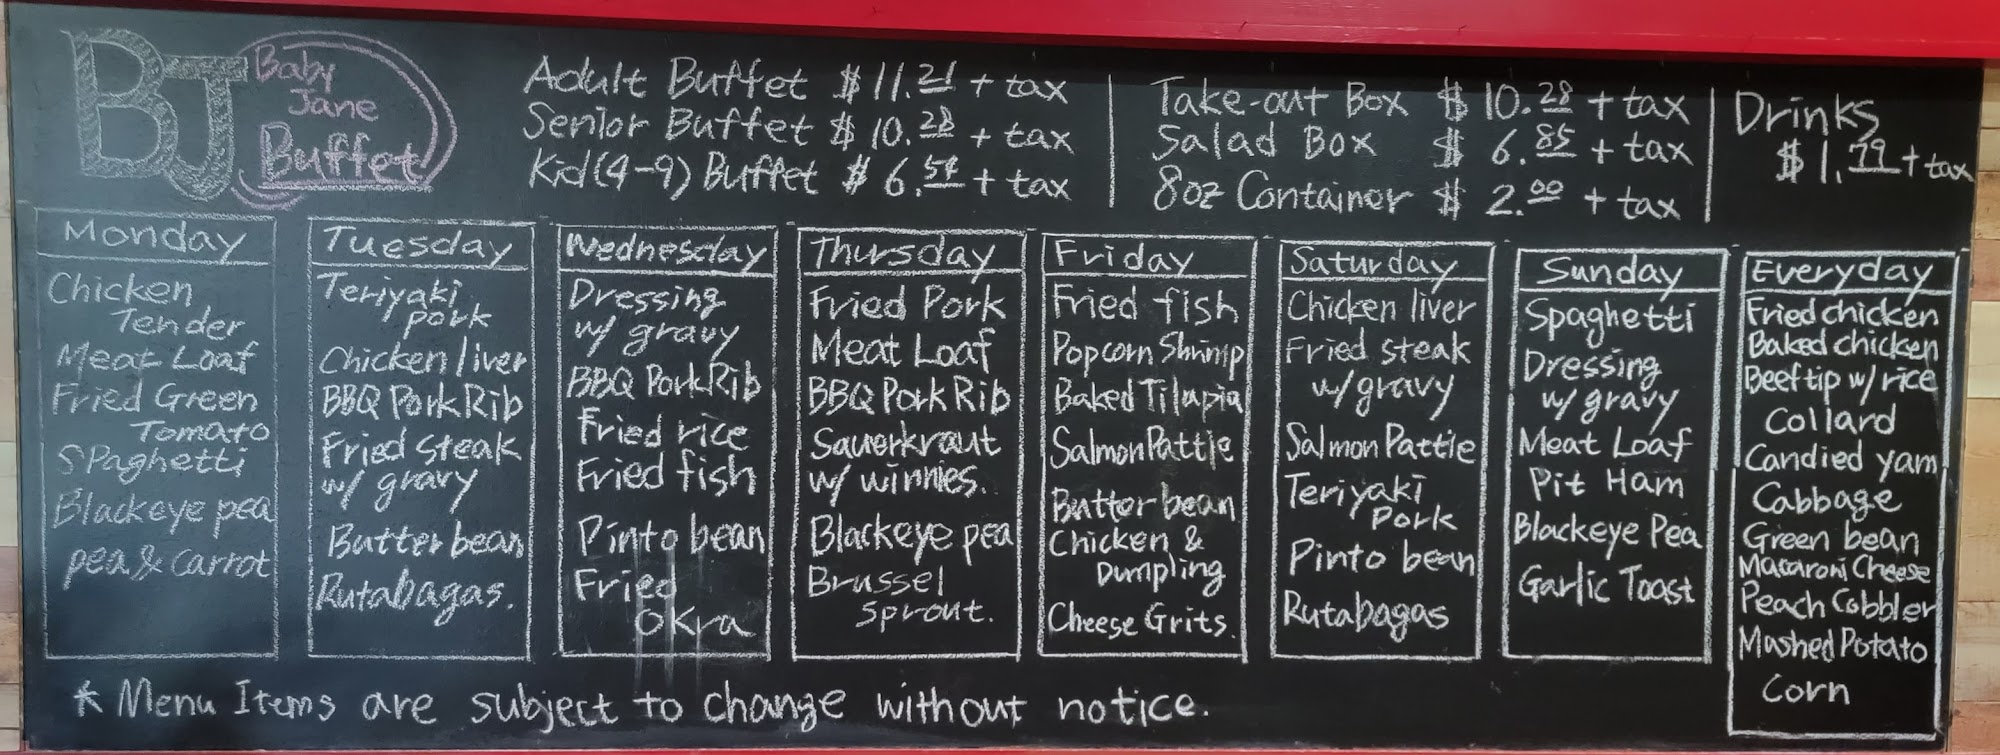 BJ
Baby
Jane
Buffet
Adult Buffet $ 11.21 + tax
Senior Buffet $ 10.28 + tax
Kid (4-9) Buffet $ 6.54 + tax
Take-out Box $ 10.28 + tax
Salad Box $ 6.85 + tax
8oz Container $ 2.00 + tax
Drinks
$ 1.79 + tax
Monday
Chicken
Tender
Meat Loaf
Fried Green
Tomato
Spaghetti
Blackeye pea
pea & carrot
Tuesday
Teriyaki
pork
Chicken liver
BBQ Pork Rib
Fried steak
w/ gravy
Butter bean
Rutabagas.
Wednesday
Dressing
w/ gravy
BBQ Pork Rib
Fried rice
Fried fish
Pinto bean
Fried
Okra
Thursday
Fried Pork
Meat Loaf
BBQ Pork Rib
Sauerkraut
w/ winnies.
Blackeye pea
Brussel
sprout.
Friday
Fried fish
Popcorn Shrimp
Baked Tilapia
Salmon Pattie
Butter bean
Chicken &
Dumpling
Cheese Grits.
Saturday
Chicken liver
Fried steak
w/ gravy
Salmon Pattie
Teriyaki
Pork
Pinto bean
Rutabagas
Sunday
Spaghetti
Dressing
w/ gravy
Meat Loaf
Pit Ham
Blackeye Pea
Garlic Toast
Everyday
Fried chicken
Baked chicken
Beef tip w/ rice
Collard
Candied yam
Cabbage
Green bean
Macaroni Cheese
Peach Cobbler
Mashed Potato
Corn
* Menu Items are subject to change without notice.